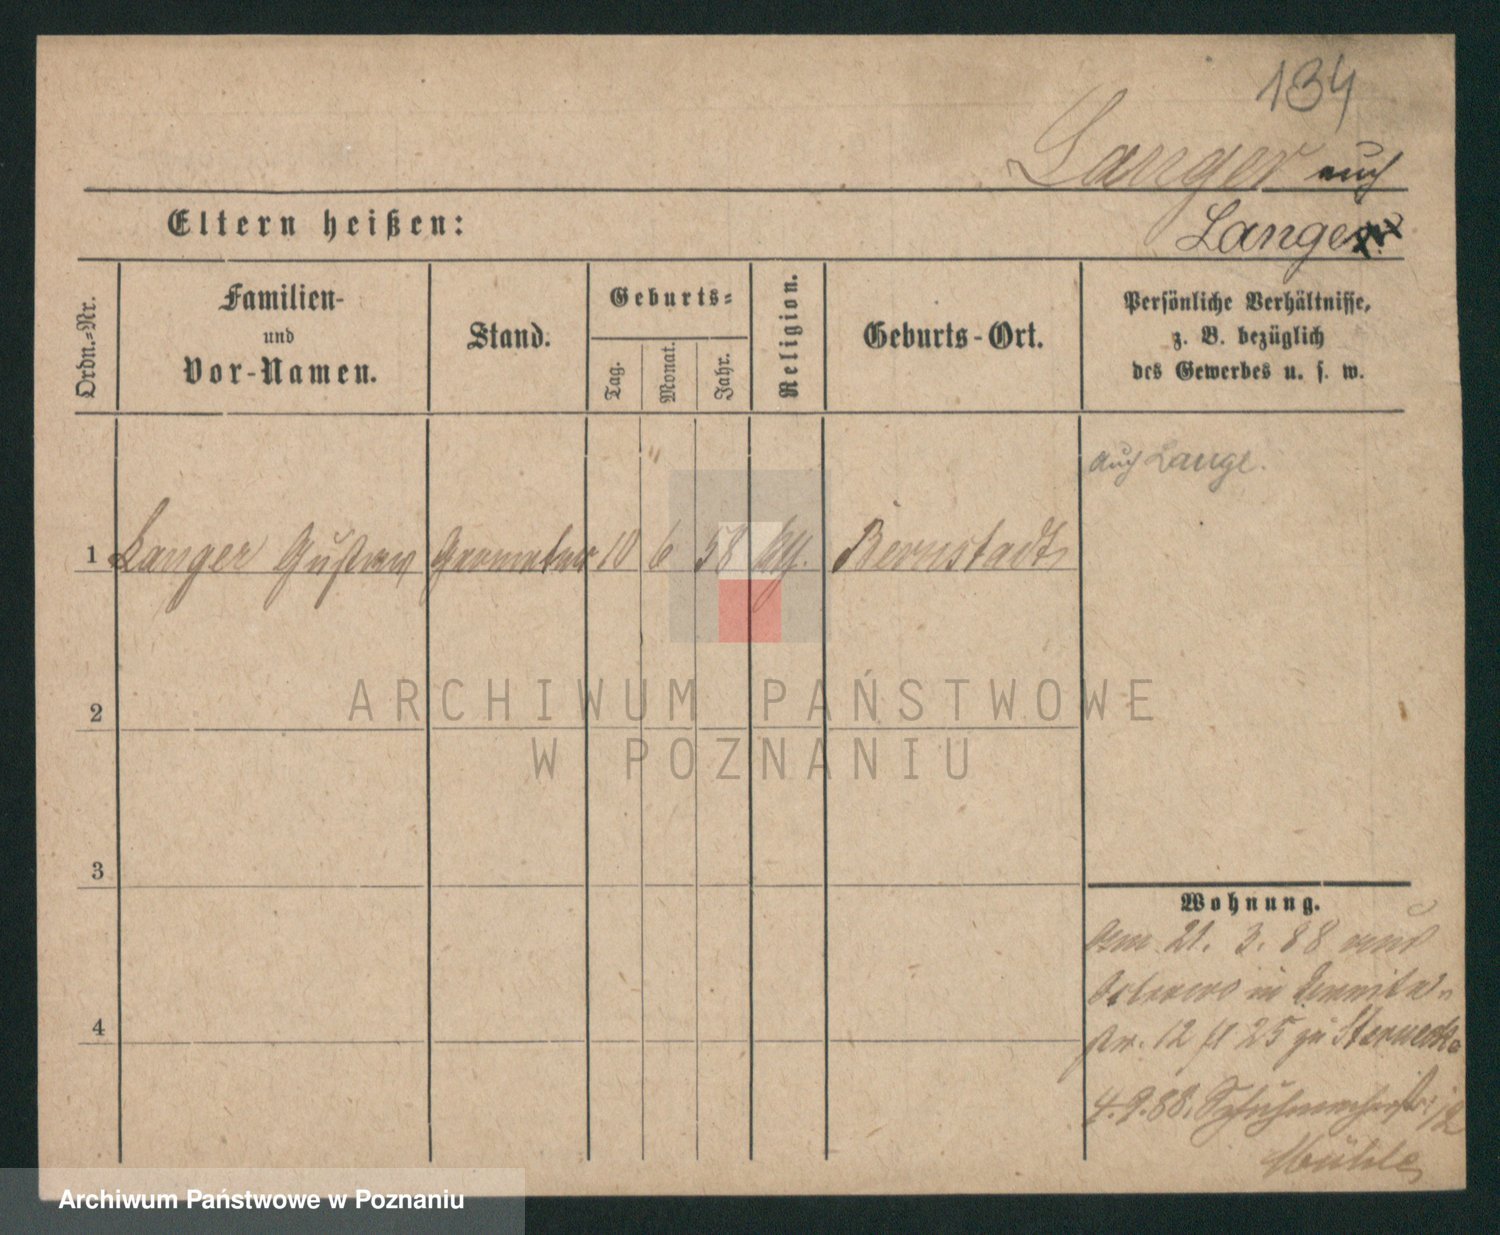 134
Langer auch
Lange
Eltern heißen:
Ordn.-Nr.
Familien-
und
Vor-Namen.
Stand.
Geburts-
Tag.
Monat.
Jahr.
Religion.
Geburts-Ort.
Persönliche Verhältnisse,
z. B. bezüglich
des Gewerbes u. s. w.
auch Lange.
1 Langer Gustav Geometer 10 6 58 Bernstadt
ARCHIWUM PAŃSTWOWE
W POZNANIU
2
3
4
Wohnung.
21. 3. 88
in
12 25 zu Sterneck
4. 9. 88. Schuhmacherstr. 12
Mühle
Archiwum Państwowe w Poznaniu